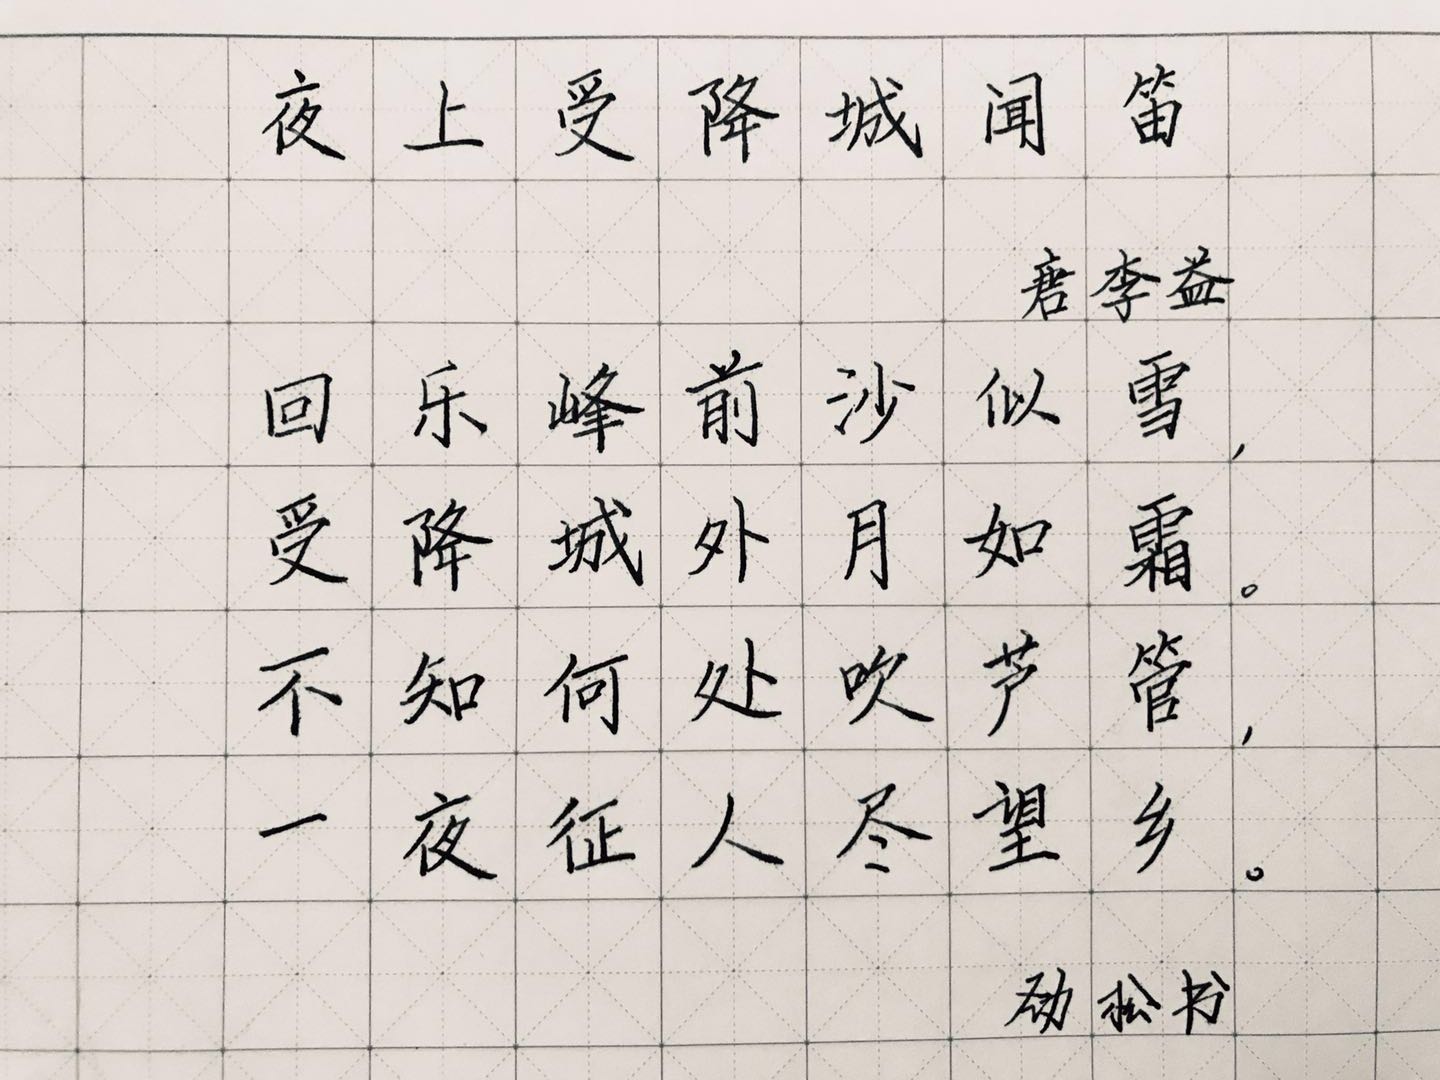 夜上受降城闻笛
唐李益
回乐峰前沙似雪,
受降城外月如霜。
不知何处吹芦管,
一夜征人尽望乡。
劲松书